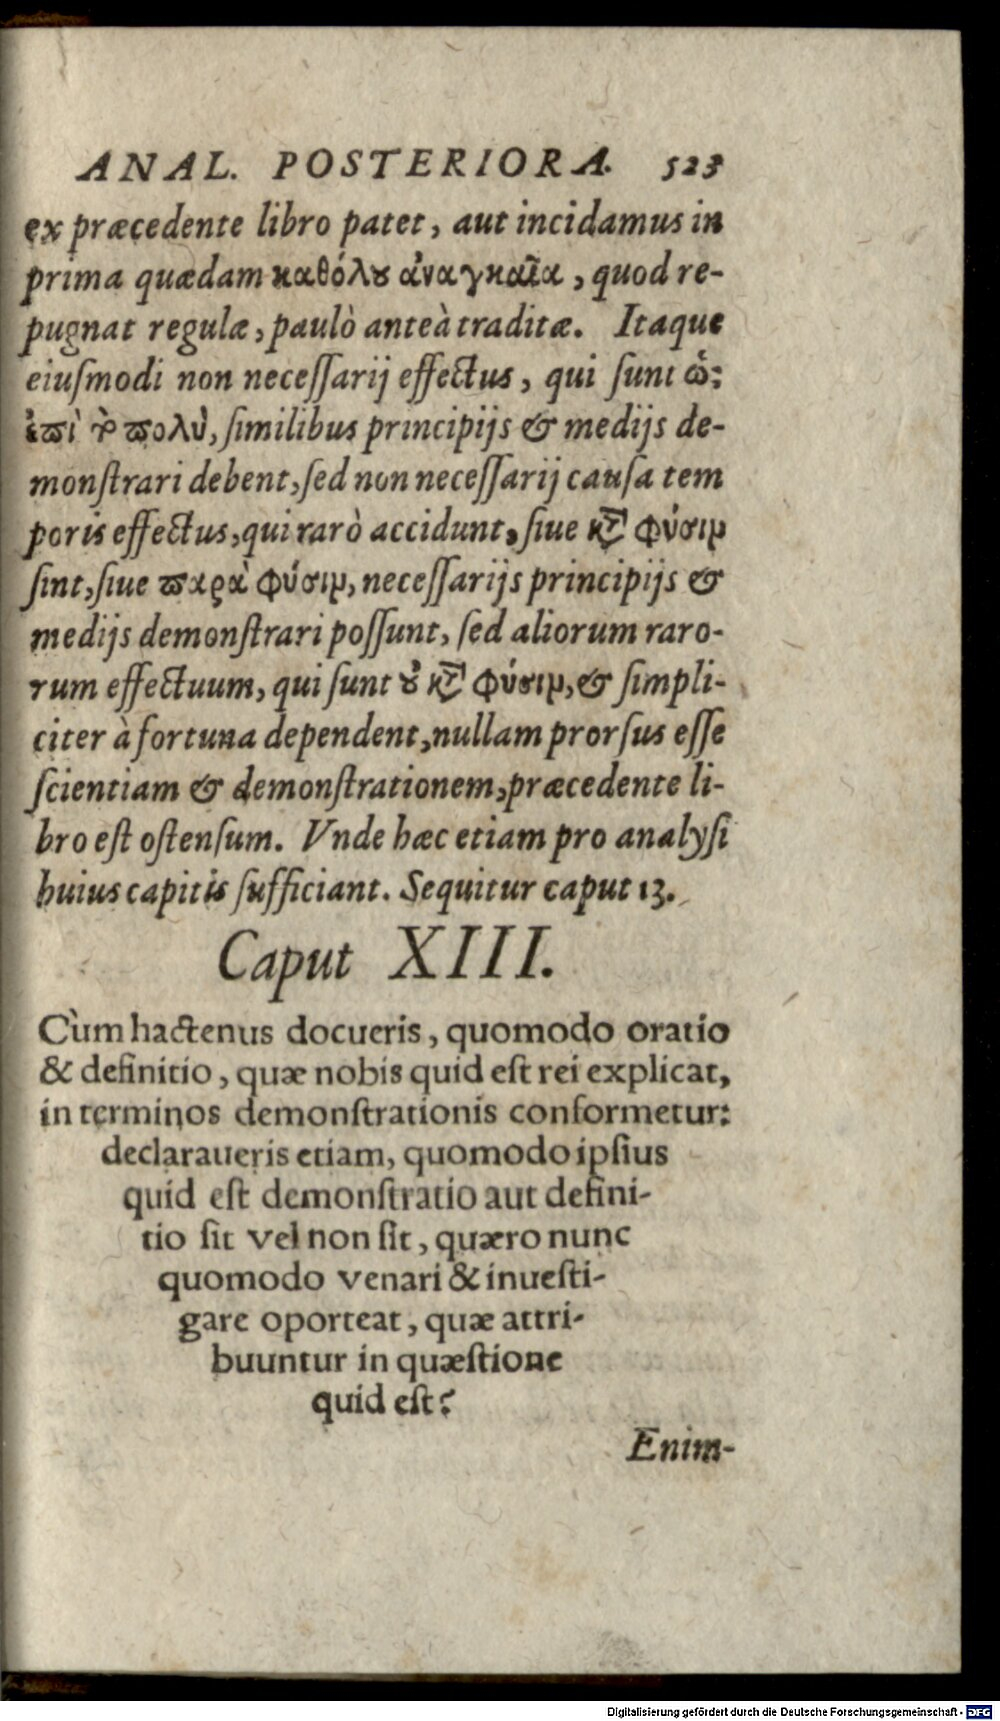 ANAL. POSTERIORA. 523
ex præcedente libro patet, aut incidamus in
prima quædam καθόλȣ ἀναγκαῖα, quod re-
pugnat regulæ, paulò anteà traditæ. Itaque
eiuſmodi non neceſſarij effectus, qui ſunt ὡς
ἐπὶ τὸ πολὺ, ſimilibus principijs & medijs de-
monſtrari debent, ſed non neceſſarij cauſa tem
poris effectus, qui rarò accidunt, ſiue κτ̀ φύσιμ
ſint, ſiue παρὰ φύσιμ, neceſſarijs principijs &
medijs demonſtrari poſſunt, ſed aliorum raro-
rum effectuum, qui ſunt ȣ̓ κτ̀ φύσιμ, & ſimpli-
citer à fortuna dependent, nullam prorſus eſſe
ſcientiam & demonſtrationem, præcedente li-
bro eſt oſtenſum. Vnde hæc etiam pro analyſi
huius capitis ſufficiant. Sequitur caput 13.
Caput XIII.
Cùm hactenus docueris, quomodo oratio
& definitio, quæ nobis quid eſt rei explicat,
in terminos demonſtrationis conformetur:
declaraueris etiam, quomodo ipſius
quid eſt demonſtratio aut defini-
tio ſit vel non ſit, quæro nunc
quomodo venari & inueſti-
gare oporteat, quæ attri-
buuntur in quæſtione
quid eſt?
Enim-
Digitalisierung gefördert durch die Deutsche Forschungsgemeinschaft - DFG